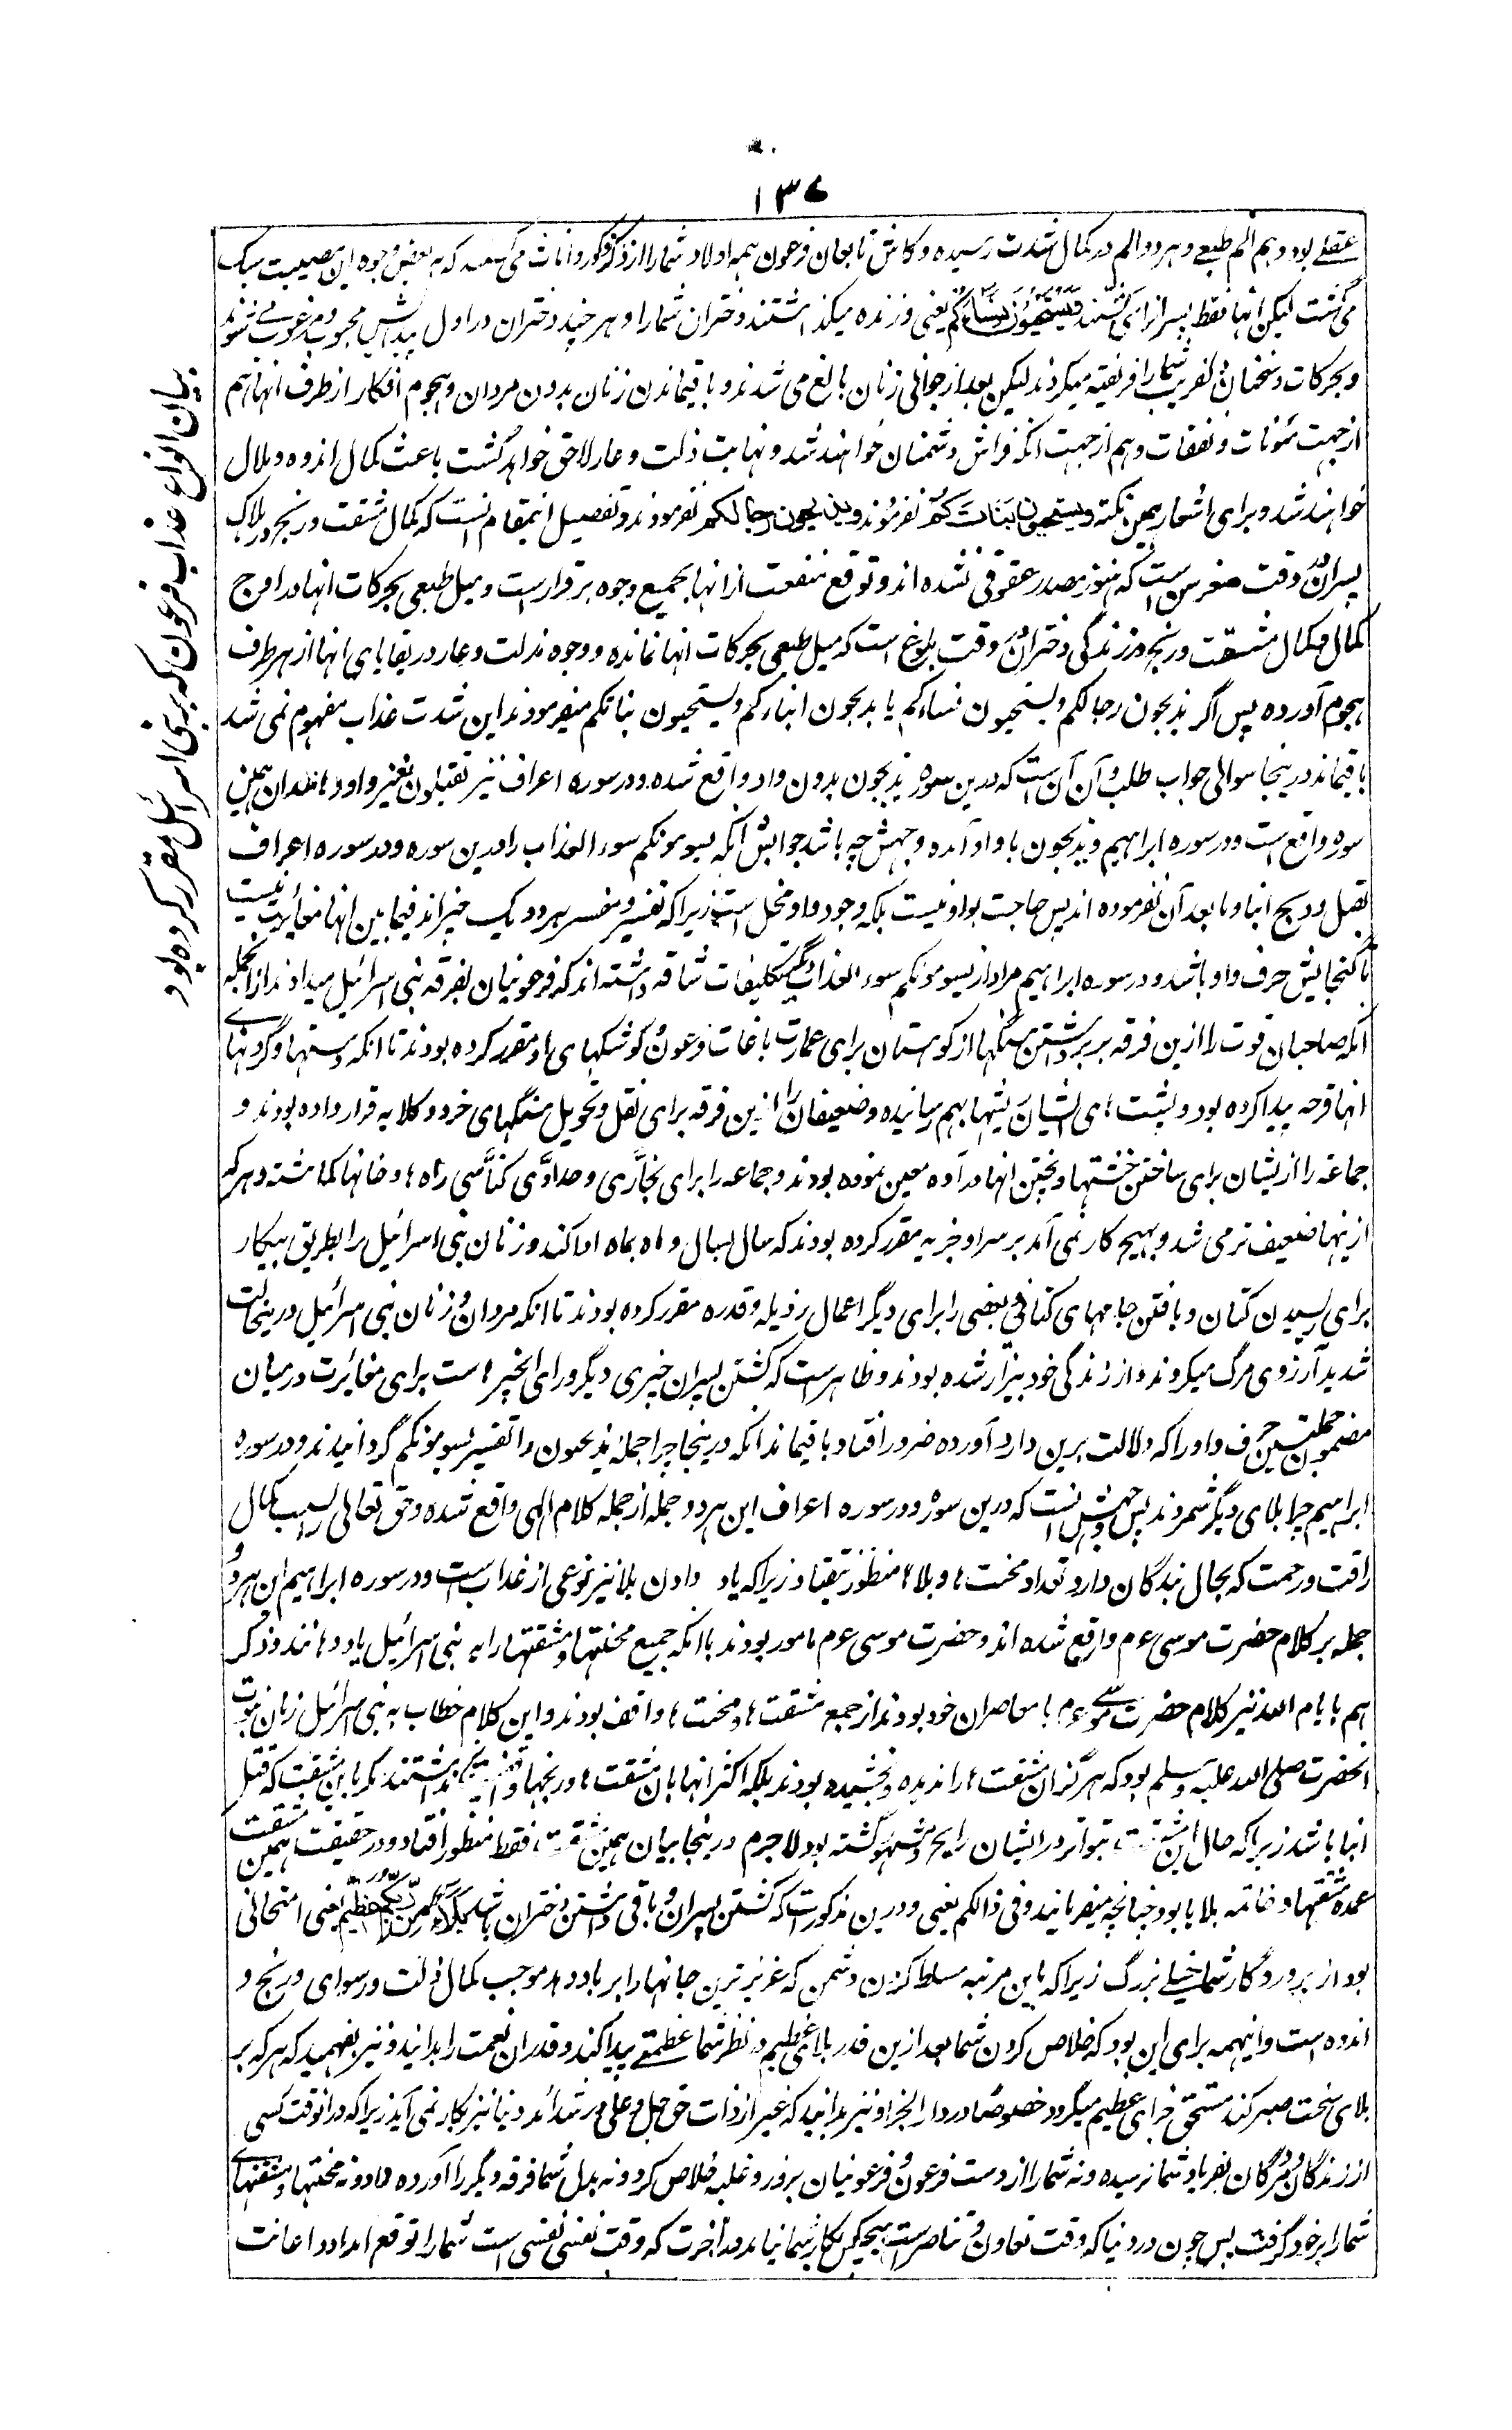 ۱۳۷
عقلے بود و ہم الم طبعے و ہر دو الم در کمال شدت رسیدہ و کاش تابعان فرعون ہمہ اولاد شما را از ذکور و اناث می کشتند کہ بہ بعض وجوہ این مصیبت سبک
می گشت لیکن انہا فقط پسران را می کشتند وَیَسْتَحْیُوْنَ نِسَاءَکُمْ یعنی و زندہ میگذاشتند دختران شما را و ہر چند دختران در اول پیدایش محبوب و مرغوب می شوند
و بحرکات و سخنان دلفریب شما را فریفتہ میکردند لیکن بعد از جوانی زنان بالغ می شدند و باقیماندن زنان بدون مردان و ہجوم افکار از طرف انہا ہم
از جہت مئونات و نفقات و ہم از جہت انکہ فراش دشمنان خواہند شد و نہایت ذلت و عار لاحق خواہد گشت باعث کمال اندوہ و ملال
خواہند شد و برای اشعار ہمین نکتہ ویستحیون بناتکم نفرمودند و یذبحون رجالکم نفرمودند و تفصیل اینمقام انست کہ کمال مشقت و رنج در ہلاک
پسران در وقت صغر سن است کہ ہنوز مصدر عقوقی نشدہ اند و توقع منفعت از انہا بجمیع وجوہ برقرار است و میل طبعی بحرکات انہا در اوج
کمال و کمال مشقت و رنج در زندگی دختران در وقت بلوغ است کہ میل طبعی بحرکات انہا نماندہ و وجوہ مذلت و عار در بقایای انہا از ہر طرف
ہجوم آوردہ پس اگر یذبحون رجالکم ویستحیون نساءکم یا یذبحون ابناءکم ویستحیون بناتکم میفرمودند این شدت عذاب مفہوم نمی شد
باقیماند درینجا سوالی جواب طلب و آن آن است کہ درین سورہ یذبحون بدون واو واقع شدہ و در سورہ اعراف نیز یقتلون بغیر واو مانند این ہمین
سورہ واقع است و در سورہ ابراہیم ویذبحون با واو آمدہ وجہش چہ باشد جوابش انکہ یسومونکم سوء العذاب را درین سورہ و در سورہ اعراف
بقتل و ذبح ابنا و ما بعد آن تفسیر فرمودہ اند پس حاجت بواو نیست بلکہ وجود واو مخل است زیرا کہ تفسیر و مفسر ہر دو یک چیز اند فیما بین انہا مغائرت نیست
تا گنجایش حرف واو باشد و در سورہ ابراہیم مراد از یسومونکم سوء العذاب دیگر تکلیفات شاقہ داشتہ اند کہ فرعونیان بفرقہ بنی اسرائیل میدادند از انجملہ
انکہ صاحبان قوت را ازین فرقہ بر برداشتن سنگہا از کوہستان برای عمارت باغات فرعون و کوشکہای او مقرر کردہ بودند تا انکہ دستہا و گردنہاے
انہا قرحہ پیدا کردہ بود و پشت ہای ایشان پینہا بہم رسانیدہ و ضعیفان را ازین فرقہ برای نقل و تحویل سنگہای خرد و گلابہ قرار دادہ بودند و
جماعہ را از ایشان برای ساختن خشتہا و پختن انہا در آوہ معین نمودہ بودند و جماعہ را برای نجاری و حدادی و کناسی راہ ہا و خانہا گماشتہ و ہر کہ
از ینہا ضعیف تر می شد و بہیچ کار نمی آمد بر سر او جزیہ مقرر کردہ بودند کہ سال بسال و ماہ بماہ ادا کند و زنان بنی اسرائیل را بطریق بیکار
برای ریسیدن کتان و بافتن جامہای کتانی و بعضی را برای دیگر اعمال رذیلہ و قذرہ مقرر کردہ بودند تا انکہ مردان و زنان بنی اسرائیل درینحالت
شدید آرزوی مرگ میکردند و از زندگی خود بیزار شدہ بودند و ظاہر است کہ کشتن پسران چیزی دیگر ورای انچیز ہاست برای مغائرت درمیان
مضمون جملتین حرف واو را کہ دلالت برین دارد آوردہ ضرور افتاد باقیماند انکہ درینجا چرا جملہ یذبحون را تفسیر یسومونکم گردانیدند و در سورہ
ابراہیم چرا بلای دیگر شمردند پس وجہش انست کہ درین سورہ و در سورہ اعراف این ہر دو جملہ از جملہ کلام الٰہی واقع شدہ و حق تعالی را بسبب کمال
رافت و رحمت کہ بحال بندگان دارد تعداد محنت ہا و بلا ہا منظور نیفتاد زیرا کہ یاد دادن بلا نیز نوعی از عذاب است و در سورہ ابراہیم این ہر دو
جملہ بر کلام حضرت موسی عم واقع شدہ اند و حضرت موسی عم مامور بودند بانکہ جمیع محنتہا و مشقتہا را بہ بنی اسرائیل یاد دہانند و ذکر
ہم بایام اللہ نیز کلام حضرت موسے عم با معاصران خود بودند از جمیع مشقت ہا و محنت ہا واقف بودند و این کلام خطاب بہ بنی اسرائیل زمان نبوت
انحضرت صلی اللہ علیہ وسلم بود کہ ہرگز ان مشقت ہا را ندیدہ و نچشیدہ بودند بلکہ اکثر انہا بان مشقت ہا و رنجہا واقفیت نداشتند مگر باین مشقت کہ قتل
ابنا باشد زیرا کہ حال این مشقت بتواتر در ایشان رایج و مشہور گشتہ بود لا جرم درینجا بیان ہمین مشقت فقط منظور افتاد و در حقیقت ہمین مشقت
عمدہ مشقتہا و خاتمہ بلایا بود چنانچہ میفرمایند وفی ذالکم یعنی و درین مذکورات کہ کشتن پسران و باقی داشتن دختران باشد بَلَاءٌ مِّنْ رَّبِّکُمْ عَظِیْمٌ یعنی امتحانی
بود از پروردگار شما خیلے بزرگ زیرا کہ باین مرتبہ مسلط کردن دشمن کہ عزیزترین جانہا را بر باد دہد موجب کمال ذلت و رسوای و رنج و
اندوہ است و اینہمہ برای این بود کہ خلاص کردن شما بعد ازین قدر بلای عظیم در نظر شما عظمتے پیدا کند و قدر ان نعمت را بدانید و نیز بفہمید کہ ہر کہ بر
بلای سخت صبر کند مستحق جزای عظیم میگردد خصوصًا در دار الجزا و نیز بدانید کہ غیر از ذات حق جل و علی در شدائد دنیا نیز بکار نمی آید زیرا کہ در انوقت کسی
از زندگان و مردگان بفریاد شما نرسیدہ و نہ شما را از دست فرعون و فرعونیان بزور و غلبہ خلاص کرد و نہ بدل شما فرقہ دیگر را آوردہ داد و نہ محنتہا و مشقتہاے
شما را بر خود گرفت پس چون در دنیا کہ وقت تعاون و تناصر است ہیچکس بکار شما نیامد در آخرت کہ وقت نفسی نفسی است شما را توقع امداد و اعانت
بیان انواع عذاب فرعون کہ بر بنی اسرائیل مقرر کردہ بود